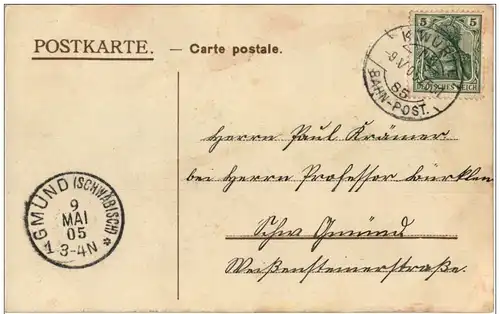 POSTKARTE. — Carte postale.
5 5
DEUTSCHES REICH
K. WÜRT
BAHN-POST.
Herrn Paul Krämer
bei Herrn Professor Bürklen
Schw Gmünd
Weißensteinerstraße.
GMÜND (SCHWÄBISCH)
9
MAI
05
1 3-4N